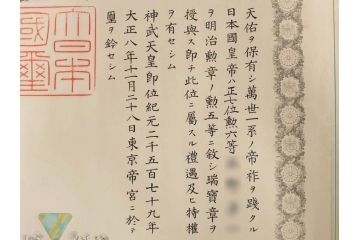 天佑ヲ保有シ萬世一系ノ帝祚ヲ踐タル
日本國皇帝ハ正七位勲六等
ヲ明治勲章ノ勲五等ニ敍シ瑞寶章ヲ
授與ス即チ此位ニ屬スル禮遇及ヒ特權
ヲ有セシム
神武天皇即位紀元二千五百七十九年
大正八年十一月二十八日東京帝宮ニ於テ
璽ヲ鈐セシム
大日本國璽